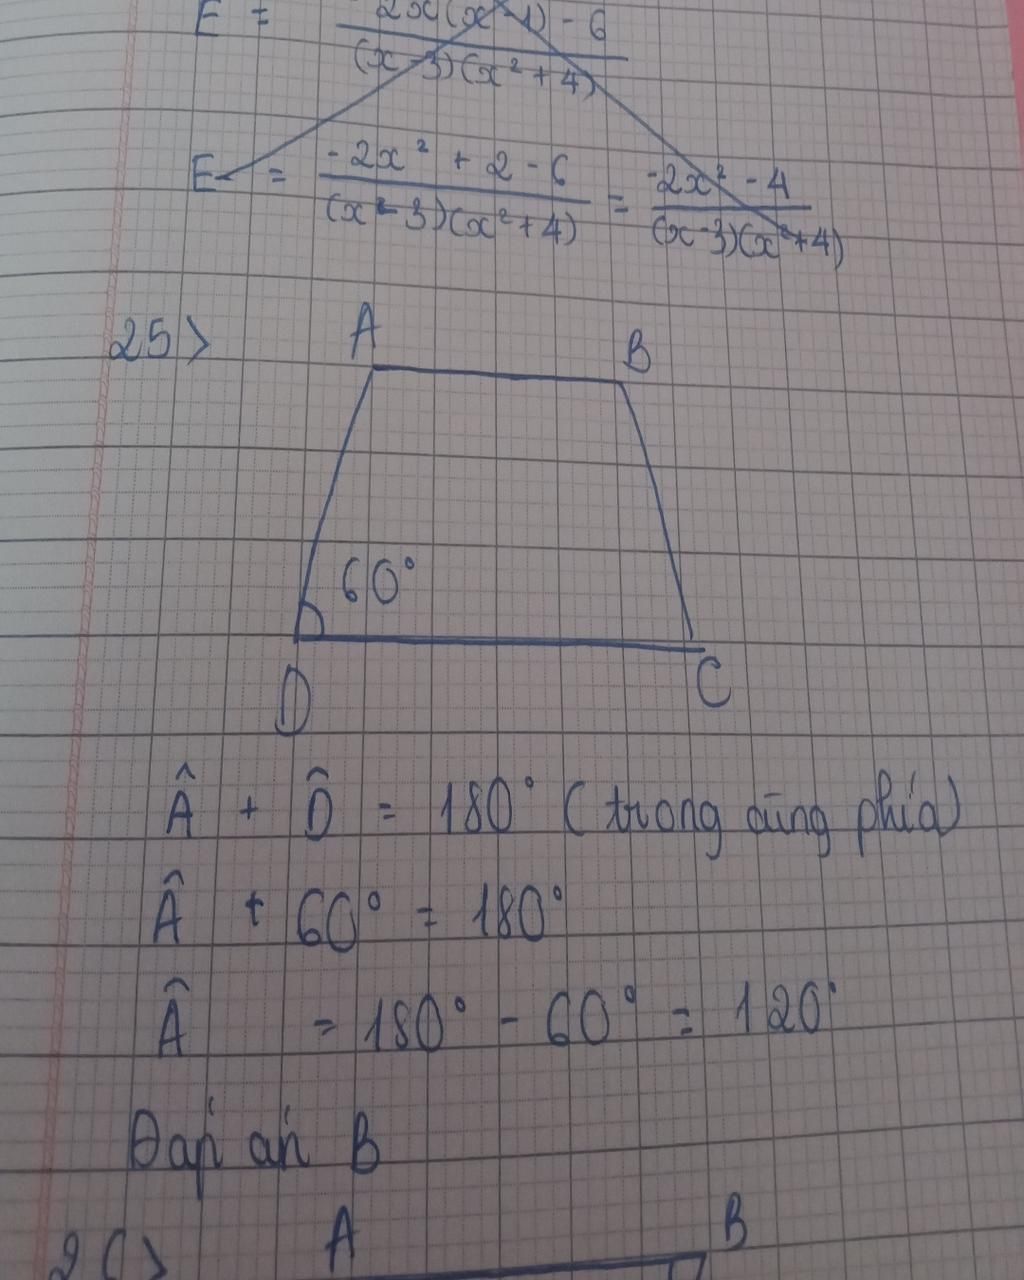 E = 2x(x-1) - 6 / (x-3)(x²+4)
E = -2x² + 2 - 6 / (x-3)(x²+4) = -2x² - 4 / (x-3)(x²+4)
25>
A B
60°
D C
Â + D̂ = 180° (trong cùng phía)
Â + 60° = 180°
Â = 180° - 60° = 120°
Đáp án B
A B